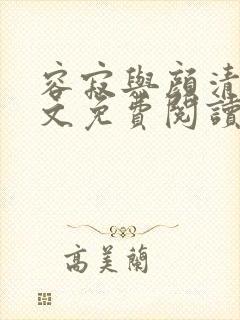 容寂與顔清
文免費閱讀
高美蘭